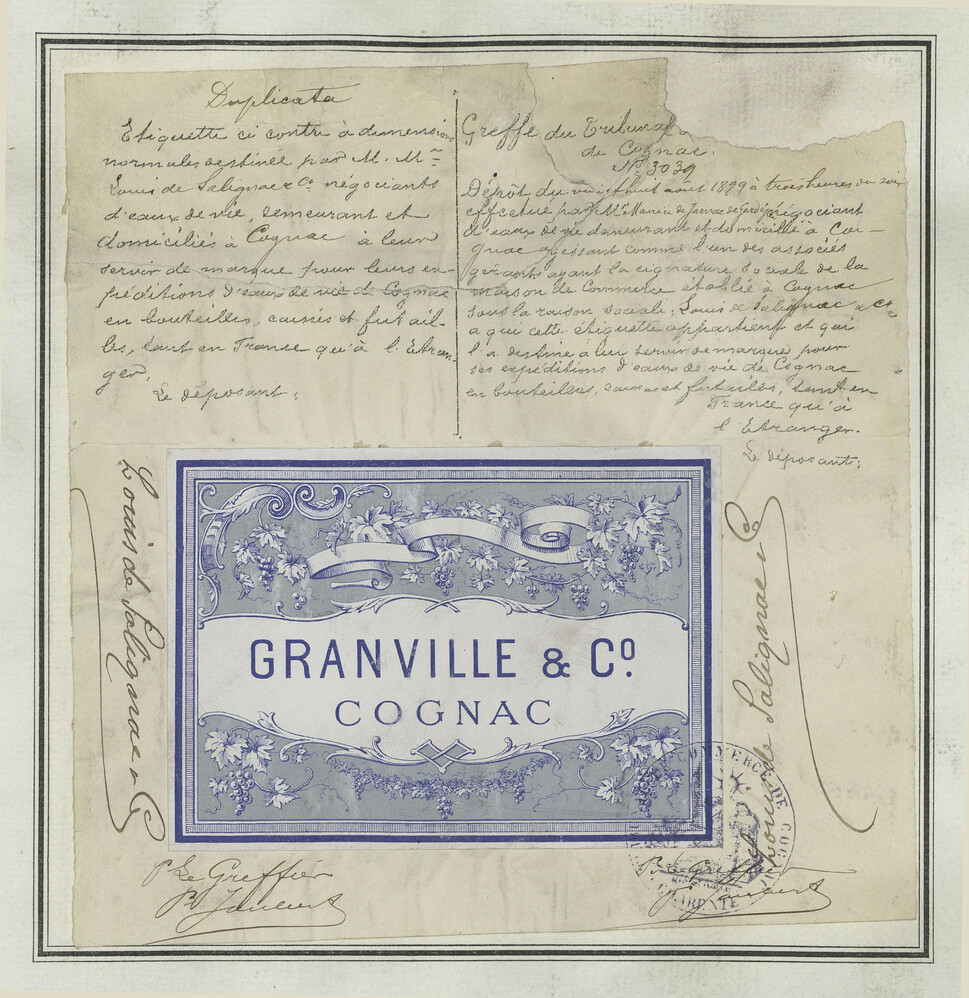 Duplicata
Etiquette ci contre à dimensions
normales destinée par M. Mrs
Louis de Salignac & Co négociants
d'eaux de vie, demeurant et
domiciliés à Cognac à leur
servir de marque pour leurs ex-
péditions d'eaux de vie de Cognac
en bouteilles, caisses et futail-
les, tant en France qu'à l'Etran-
ger.
Le déposant,
Greffe du Tribunal
de Cognac.
No 3039
Dépôt du vingt huit août 1899 à trois heures du soir
effectué par Mr Maurice de Jarnac de Gardépée négociant
d'eaux de vie demeurant et domicilié à Co-
gnac agissant comme l'un des associés
gérants ayant la signature sociale de la
maison de Commerce établie à Cognac
sous la raison sociale; Louis de Salignac & Co
a qui cette étiquette appartient et qui
l'a destine à leur servir de marque pour
ses expéditions d'eaux de vie de Cognac
en bouteilles, caisses et futailles, tant en
France qu'à
l'Etranger.
Le déposant;
Louis de Salignac & Co
GRANVILLE & Co.
COGNAC
Louis de Salignac & Co
COMMERCE DE COGNAC
CHARENTE
Pr Le Greffier
Pr Le Greffier